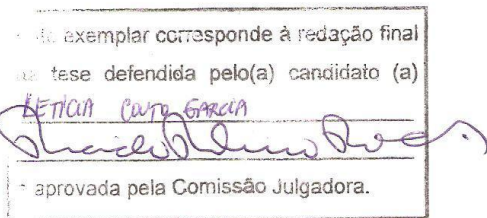 exemplar corresponde à redação final
tese defendida pelo(a) candidato (a)
LETÍCIA COUTO GARCIA
aprovada pela Comissão Julgadora.